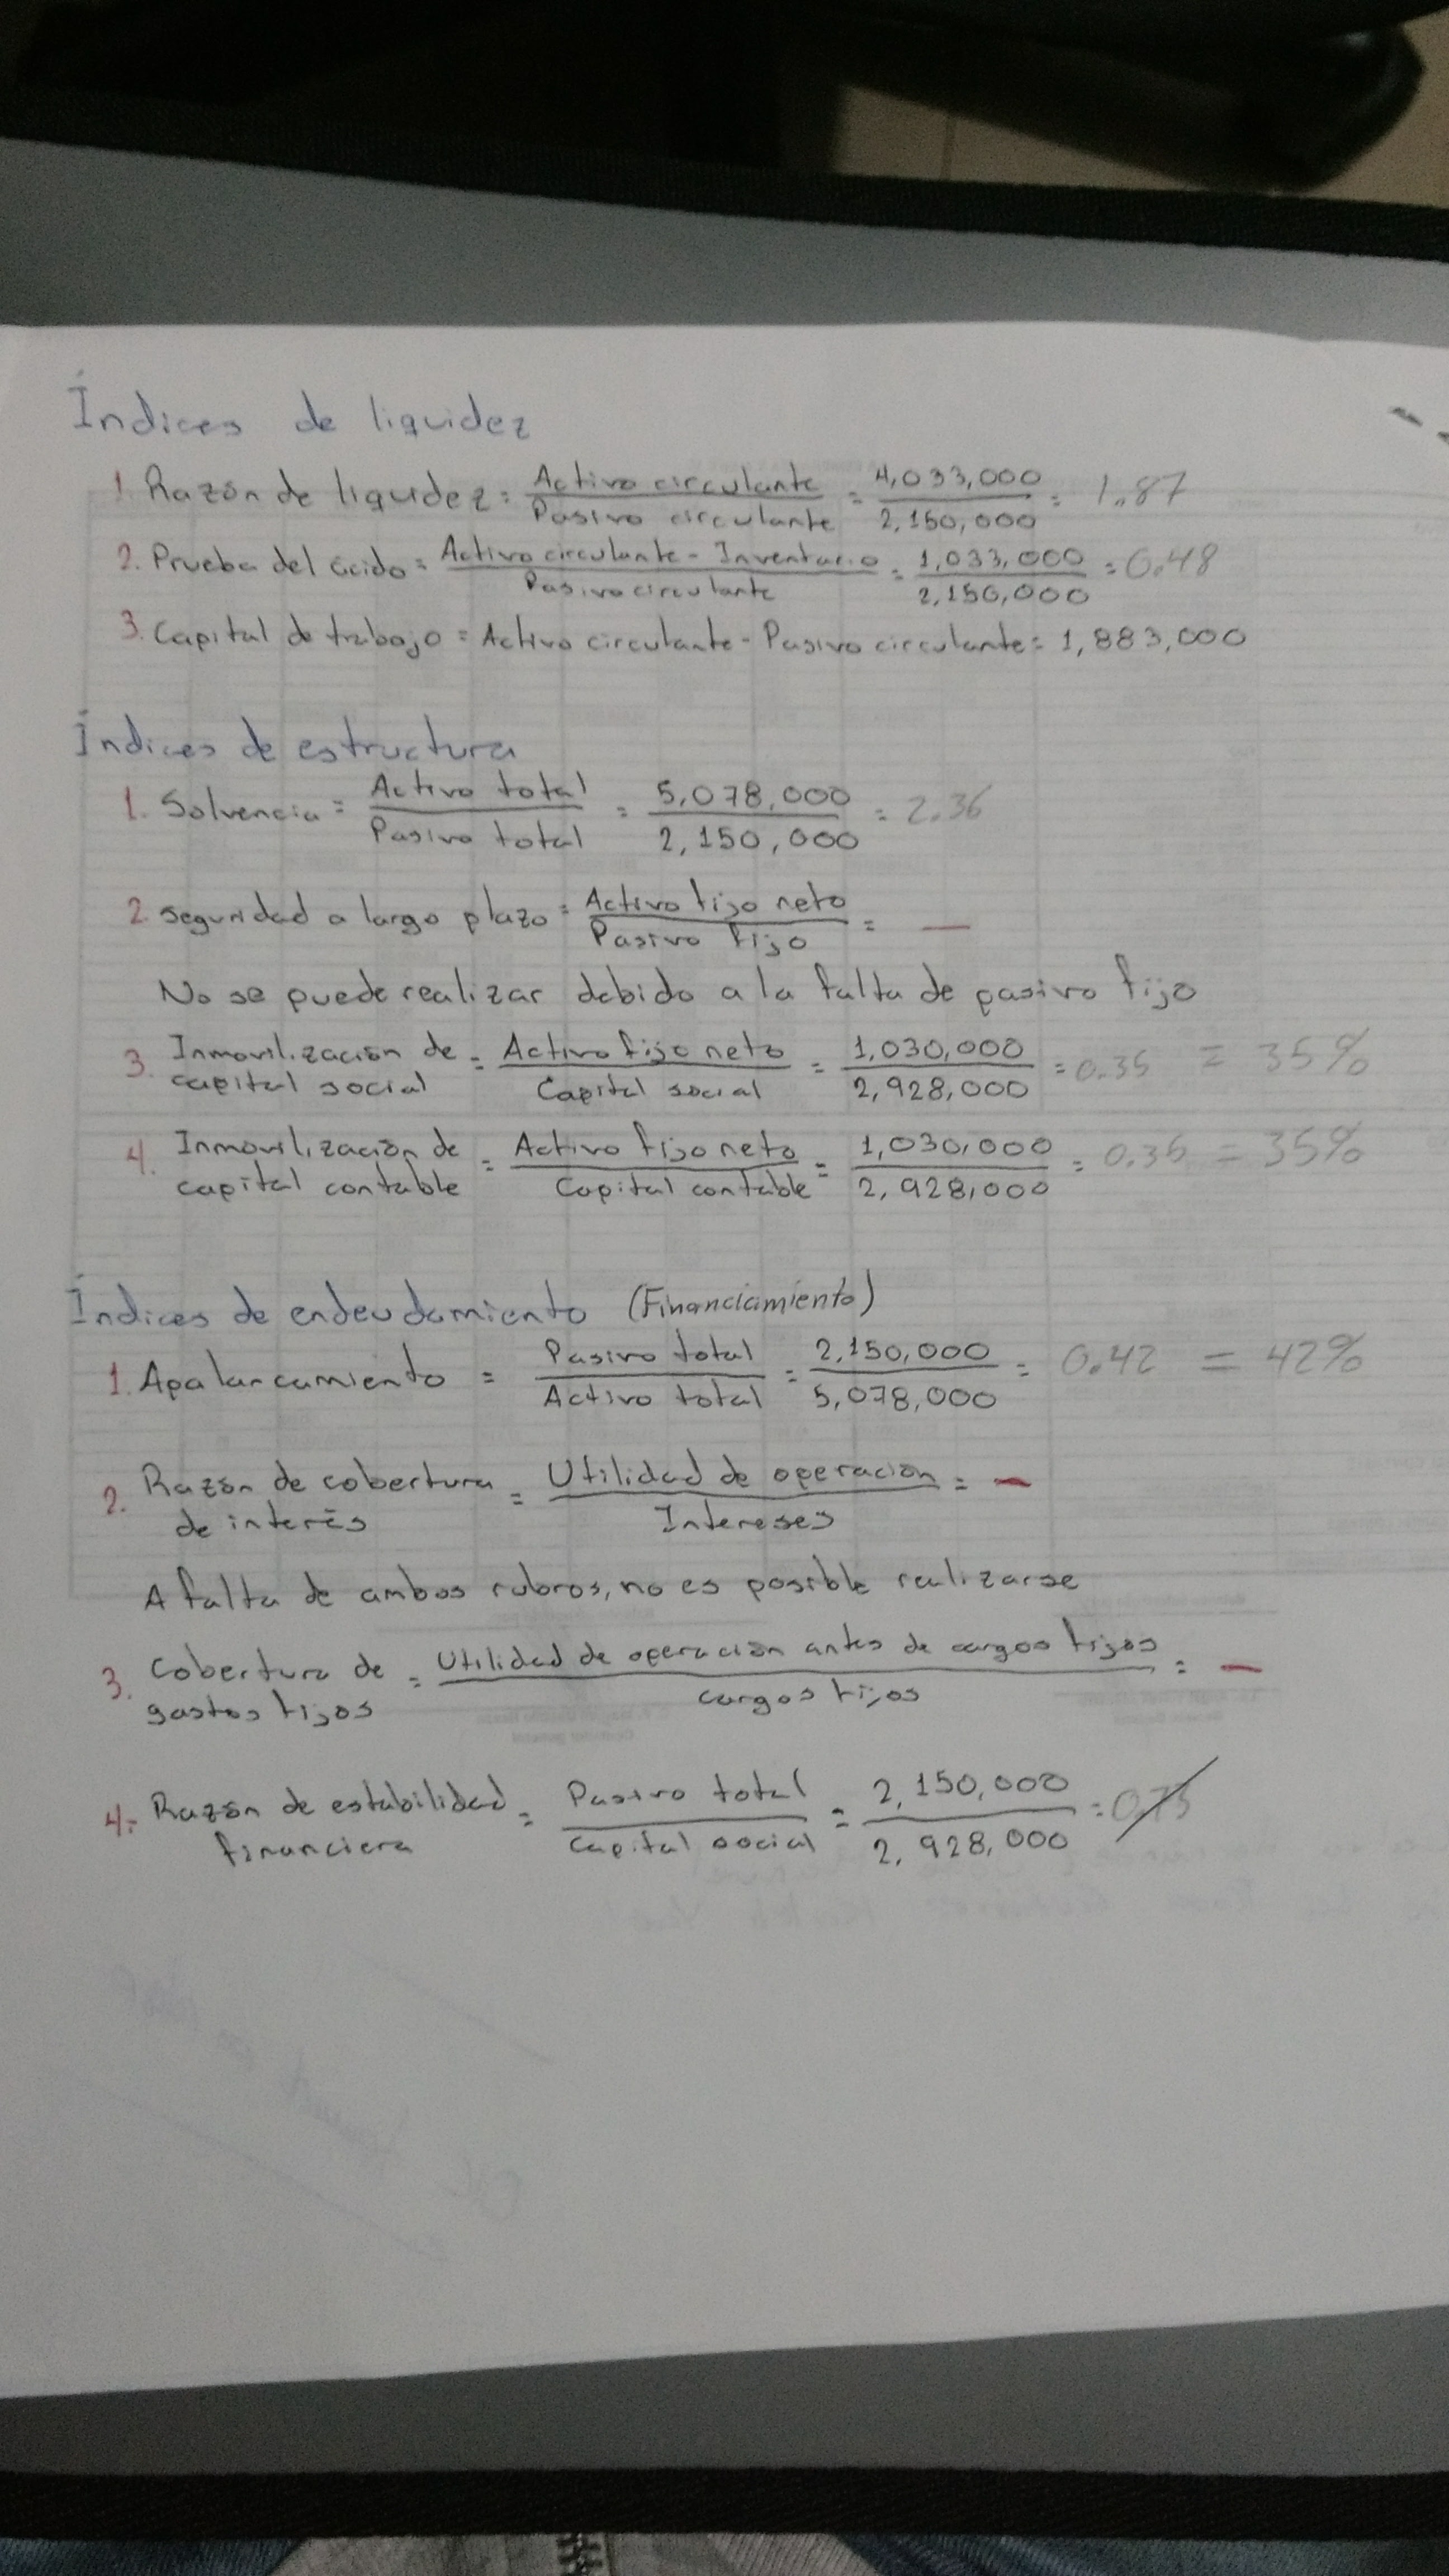 Índices de liquidez
1. Razón de liquidez = Activo circulante / Pasivo circulante = 4,033,000 / 2,150,000 = 1.87
2. Prueba del ácido = Activo circulante - Inventario / Pasivo circulante = 1,033,000 / 2,150,000 = 0.48
3. Capital de trabajo = Activo circulante - Pasivo circulante = 1,883,000
Índices de estructura
1. Solvencia = Activo total / Pasivo total = 5,078,000 / 2,150,000 = 2.36
2. Seguridad a largo plazo = Activo fijo neto / Pasivo fijo = —
No se puede realizar debido a la falta de pasivo fijo
3. Inmovilización de capital social = Activo fijo neto / Capital social = 1,030,000 / 2,928,000 = 0.35 = 35%
4. Inmovilización de capital contable = Activo fijo neto / Capital contable = 1,030,000 / 2,928,000 = 0.35 = 35%
Índices de endeudamiento (Financiamiento)
1. Apalancamiento = Pasivo total / Activo total = 2,150,000 / 5,078,000 = 0.42 = 42%
2. Razón de cobertura de interés = Utilidad de operación / Intereses = —
A falta de ambos rubros, no es posible realizarse
3. Cobertura de gastos fijos = Utilidad de operación antes de cargos fijos / cargos fijos = —
4.- Razón de estabilidad financiera = Pasivo total / Capital social = 2,150,000 / 2,928,000 = 0.73